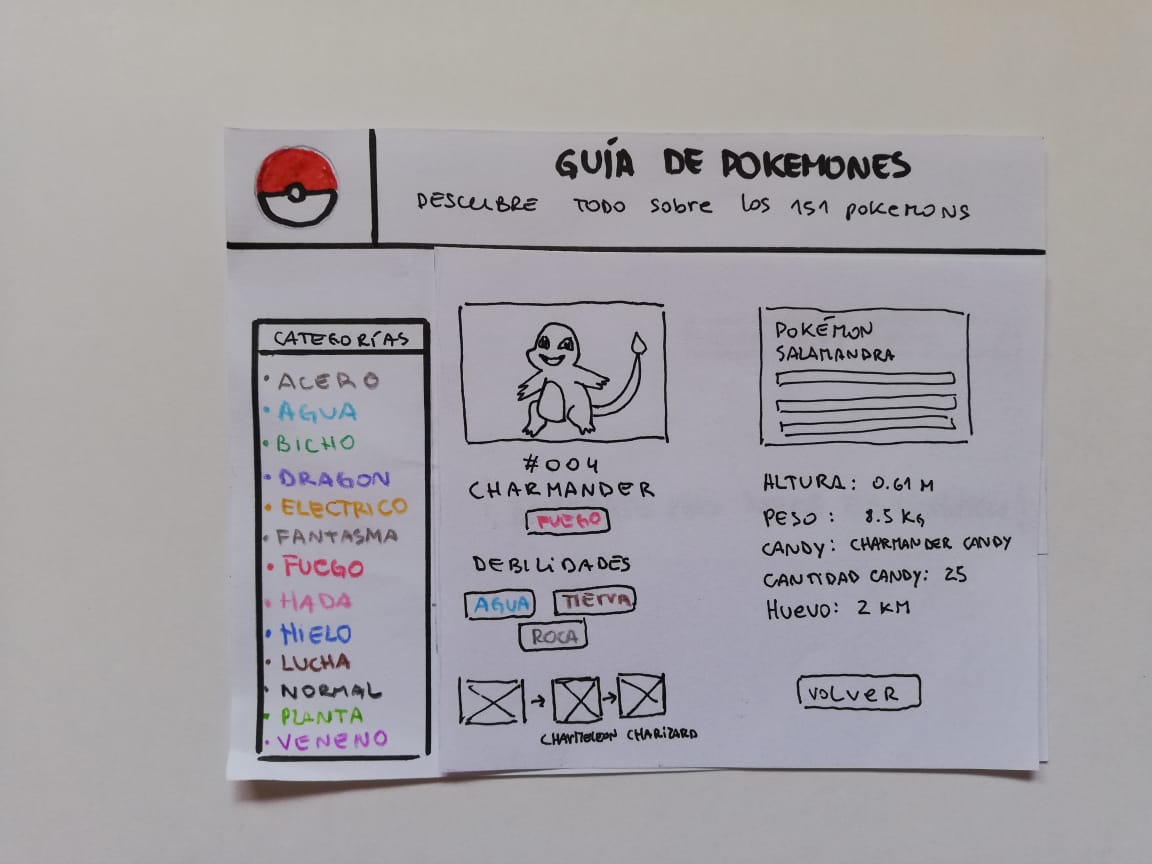 GUÍA DE POKEMONES
DESCUBRE TODO sobre los 151 pokemons
CATEGORÍAS
• ACERO
• AGUA
• BICHO
• DRAGON
• ELECTRICO
• FANTASMA
• FUEGO
• HADA
• HIELO
• LUCHA
• NORMAL
• PLANTA
• VENENO
#004
CHARMANDER
FUEGO
DEBILIDADES
AGUA TIERRA
ROCA
CHARMELEON CHARIZARD
POKÉMON
SALAMANDRA
ALTURA: 0.61 M
PESO: 8.5 Kg
CANDY: CHARMANDER CANDY
CANTIDAD CANDY: 25
HUEVO: 2 KM
VOLVER